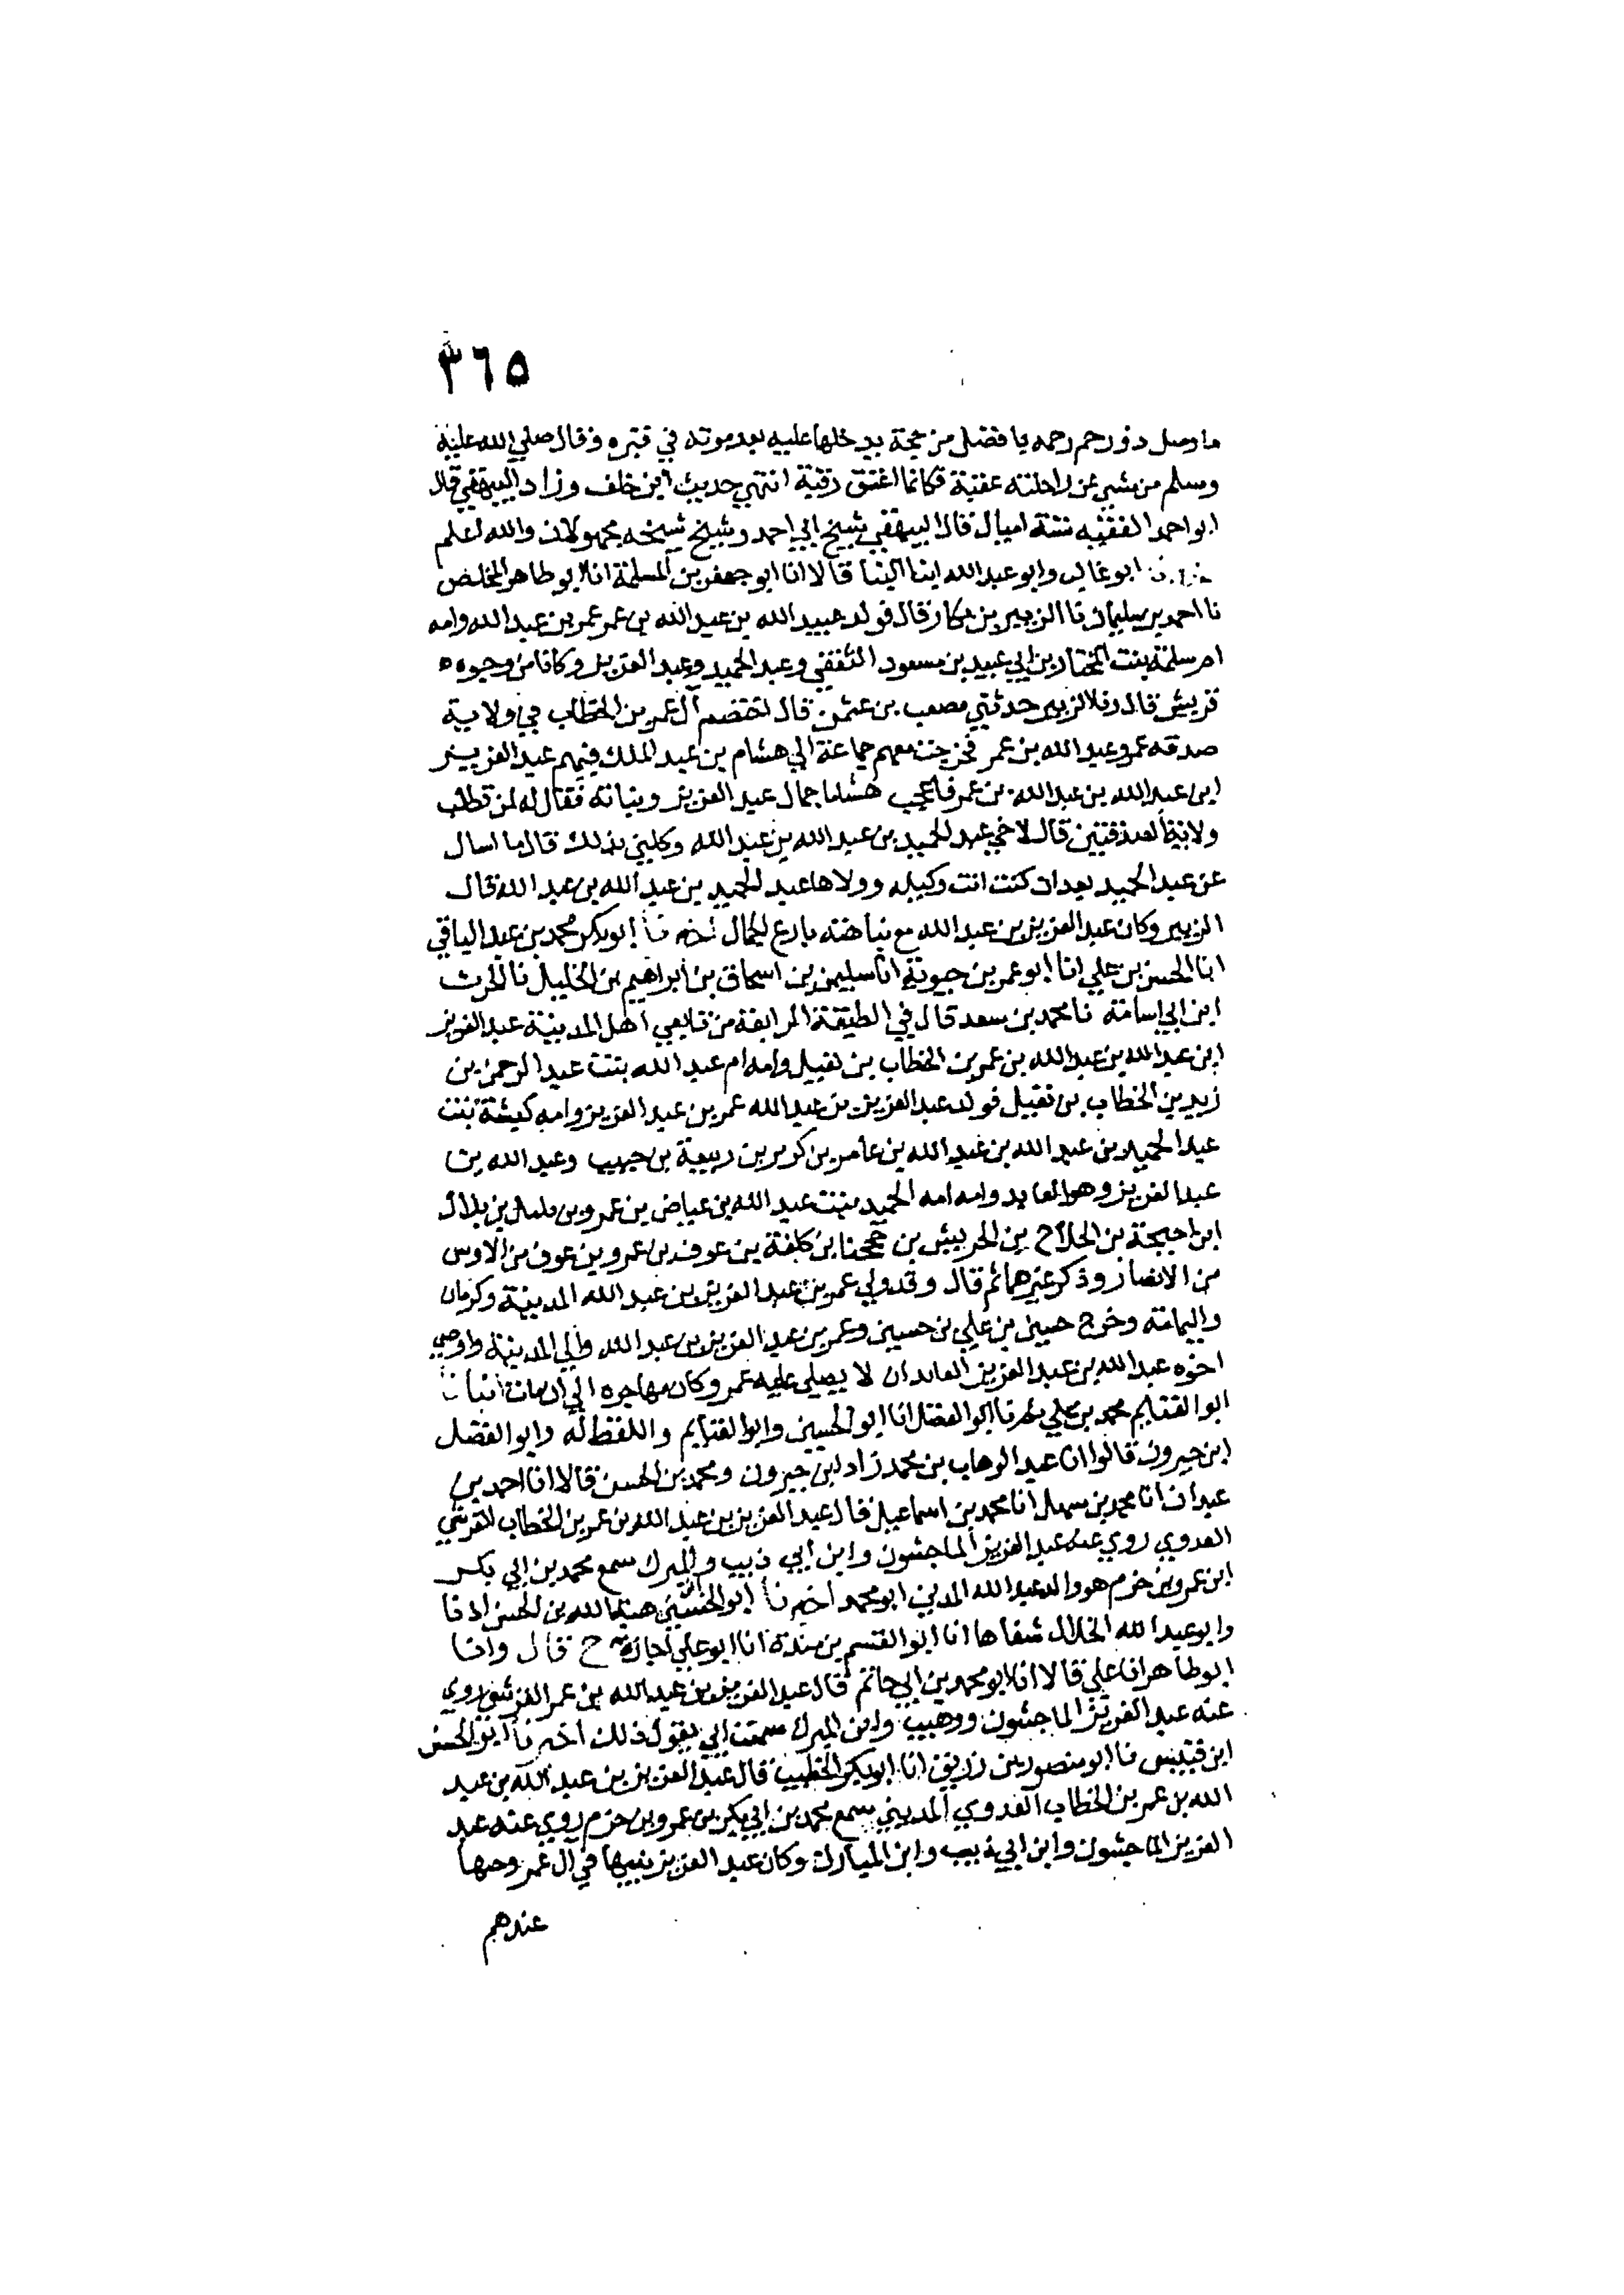 ٣٦٥
ما وصل ذو رحم رحمه يا فضل من حجة يدخلها عليه بعد موته في قبره وقال صلي الله عليه
وسلم من مشي عن راحلته عقبة فكانما اعتق رقبة انتهي حديث ابن خلف وزاد البيهقي قال
ابو احمد الفقيه ستة اميال قال البيهقي شيخ ابي احمد وشيخ شيخه مجهولان والله اعلم
ابو غالب وابو عبد الله ابنا البنا قالا انا ابو جعفر بن المسلمة انا ابو طاهر المخلص
نا احمد بن سليمان نا الزبير بن بكار قال فولد عبيد الله بن عبد الله بن عمر عمر بن عبد الله وامه
ام سلمة بنت المختار بن ابي عبيد بن مسعود الثقفي وعبد الحميد وعبد العزيز وكانا من وجوه
قريش قال ونا الزبير حدثني مصعب بن عثمن قال اختصم آل عمر بن الخطاب في ولاية
صدقه عمر وعبد الله بن عمر فخرجت معهم جماعة الي هشام بن عبد الملك فيهم عبد العزيز
ابن عبد الله بن عبد الله بن عمر فاعجب هشاما جمال عبد العزيز وبيانه فقال له لمن تطلب
ولاية الصدقتين قال لاخي عبد الحميد بن عبد الله بن عبد الله وكلني بذلك قال ما اسال
عن عبد الحميد بعد ان كنت انت وكيله وولاها عبد الحميد بن عبد الله بن عبد الله قال
الزبير وكان عبد العزيز بن عبد الله مع نباهته بارع الجمال اخبرنا ابو بكر محمد بن عبد الباقي
انا الحسن بن علي انا ابو عمر بن حيوية انا سليمن بن اسحاق بن ابراهيم بن الخليل نا الحرث
ابن ابي اسامة نا محمد بن سعد قال في الطبقة الرابعة من تابعي اهل المدينة عبد العزيز
ابن عبد الله بن عبد الله بن عمر بن الخطاب بن نفيل وامه ام عبد الله بنت عبد الرحمن بن
زيد بن الخطاب بن نفيل فولد عبد العزيز بن عبد الله عمر بن عبد العزيز وامه كيشة بنت
عبد الحميد بن عبد الله بن عبد الله بن عامر بن كريز بن ربيعة بن حبيب وعبد الله بن
عبد العزيز وهو العابد وامه امه الحميد بنت عبد الله بن عياض بن عمرو بن بليل بن بلال
ابن احيحة بن الجلاح بن الحريش بن جحجبا بن كلفة بن عوف بن عمرو بن عوف من الاوس
من الانصار وذكر غيرهما ثم قال وقد ولي عمر بن عبد العزيز بن عبد الله المدينة وكرمان
واليمامة وخرج حسين بن علي بن حسين وعمر بن عبد العزيز بن عبد الله والي المدينة واوصي
اخوه عبد الله بن عبد العزيز العابد ان لا يصلي عليه عمر وكان مهاجره الي ان مات انبانا
ابو الغنايم محمد بن علي ثم نا ابو الفضل انا ابو الحسين وابو الغنايم واللفظ له وابو الفضل
ابن خيرون قالوا انا عبد الوهاب بن محمد زاد ابن خيرون ومحمد بن الحسن قالا انا احمد بن
عبدان انا محمد بن سهل انا محمد بن اسماعيل قال عبد العزيز بن عبد الله بن عمر بن الخطاب القرشي
العدوي روي عنه عبد العزيز الماجشون وابن ابي ذييب والمبرك سمع محمد بن ابي بكر
ابن عمرو بن حزم هو والد عبد الله المدني ابو محمد اخبرنا ابو الحسين هبة الله بن الحسن اذنا
وابو عبد الله الخلال شفاها انا ابو القسم بن مندة انا ابو علي اجازة ح قال وانا
ابو طاهر انا علي قالا انا ابو محمد بن ابي حاتم قال عبد العزيز بن عبد الله بن عمر القرشي روي
عنه عبد العزيز الماجشون ووهيب وابن المبرك سمعت ابي يقول ذلك اخبرنا ابو الحسن
ابن قبيس نا ابو منصور بن زريق انا ابو بكر الخطيب قال عبد العزيز بن عبد الله بن عبد
الله بن عمر بن الخطاب العدوي المديني سمع محمد بن ابي بكر بن عمرو بن حزم روي عنه عبد
العزيز الماجشون وابن ابي ذييب وابن المبارك وكان عبد العزيز نبيها في آل عمر وجيها
عندهم